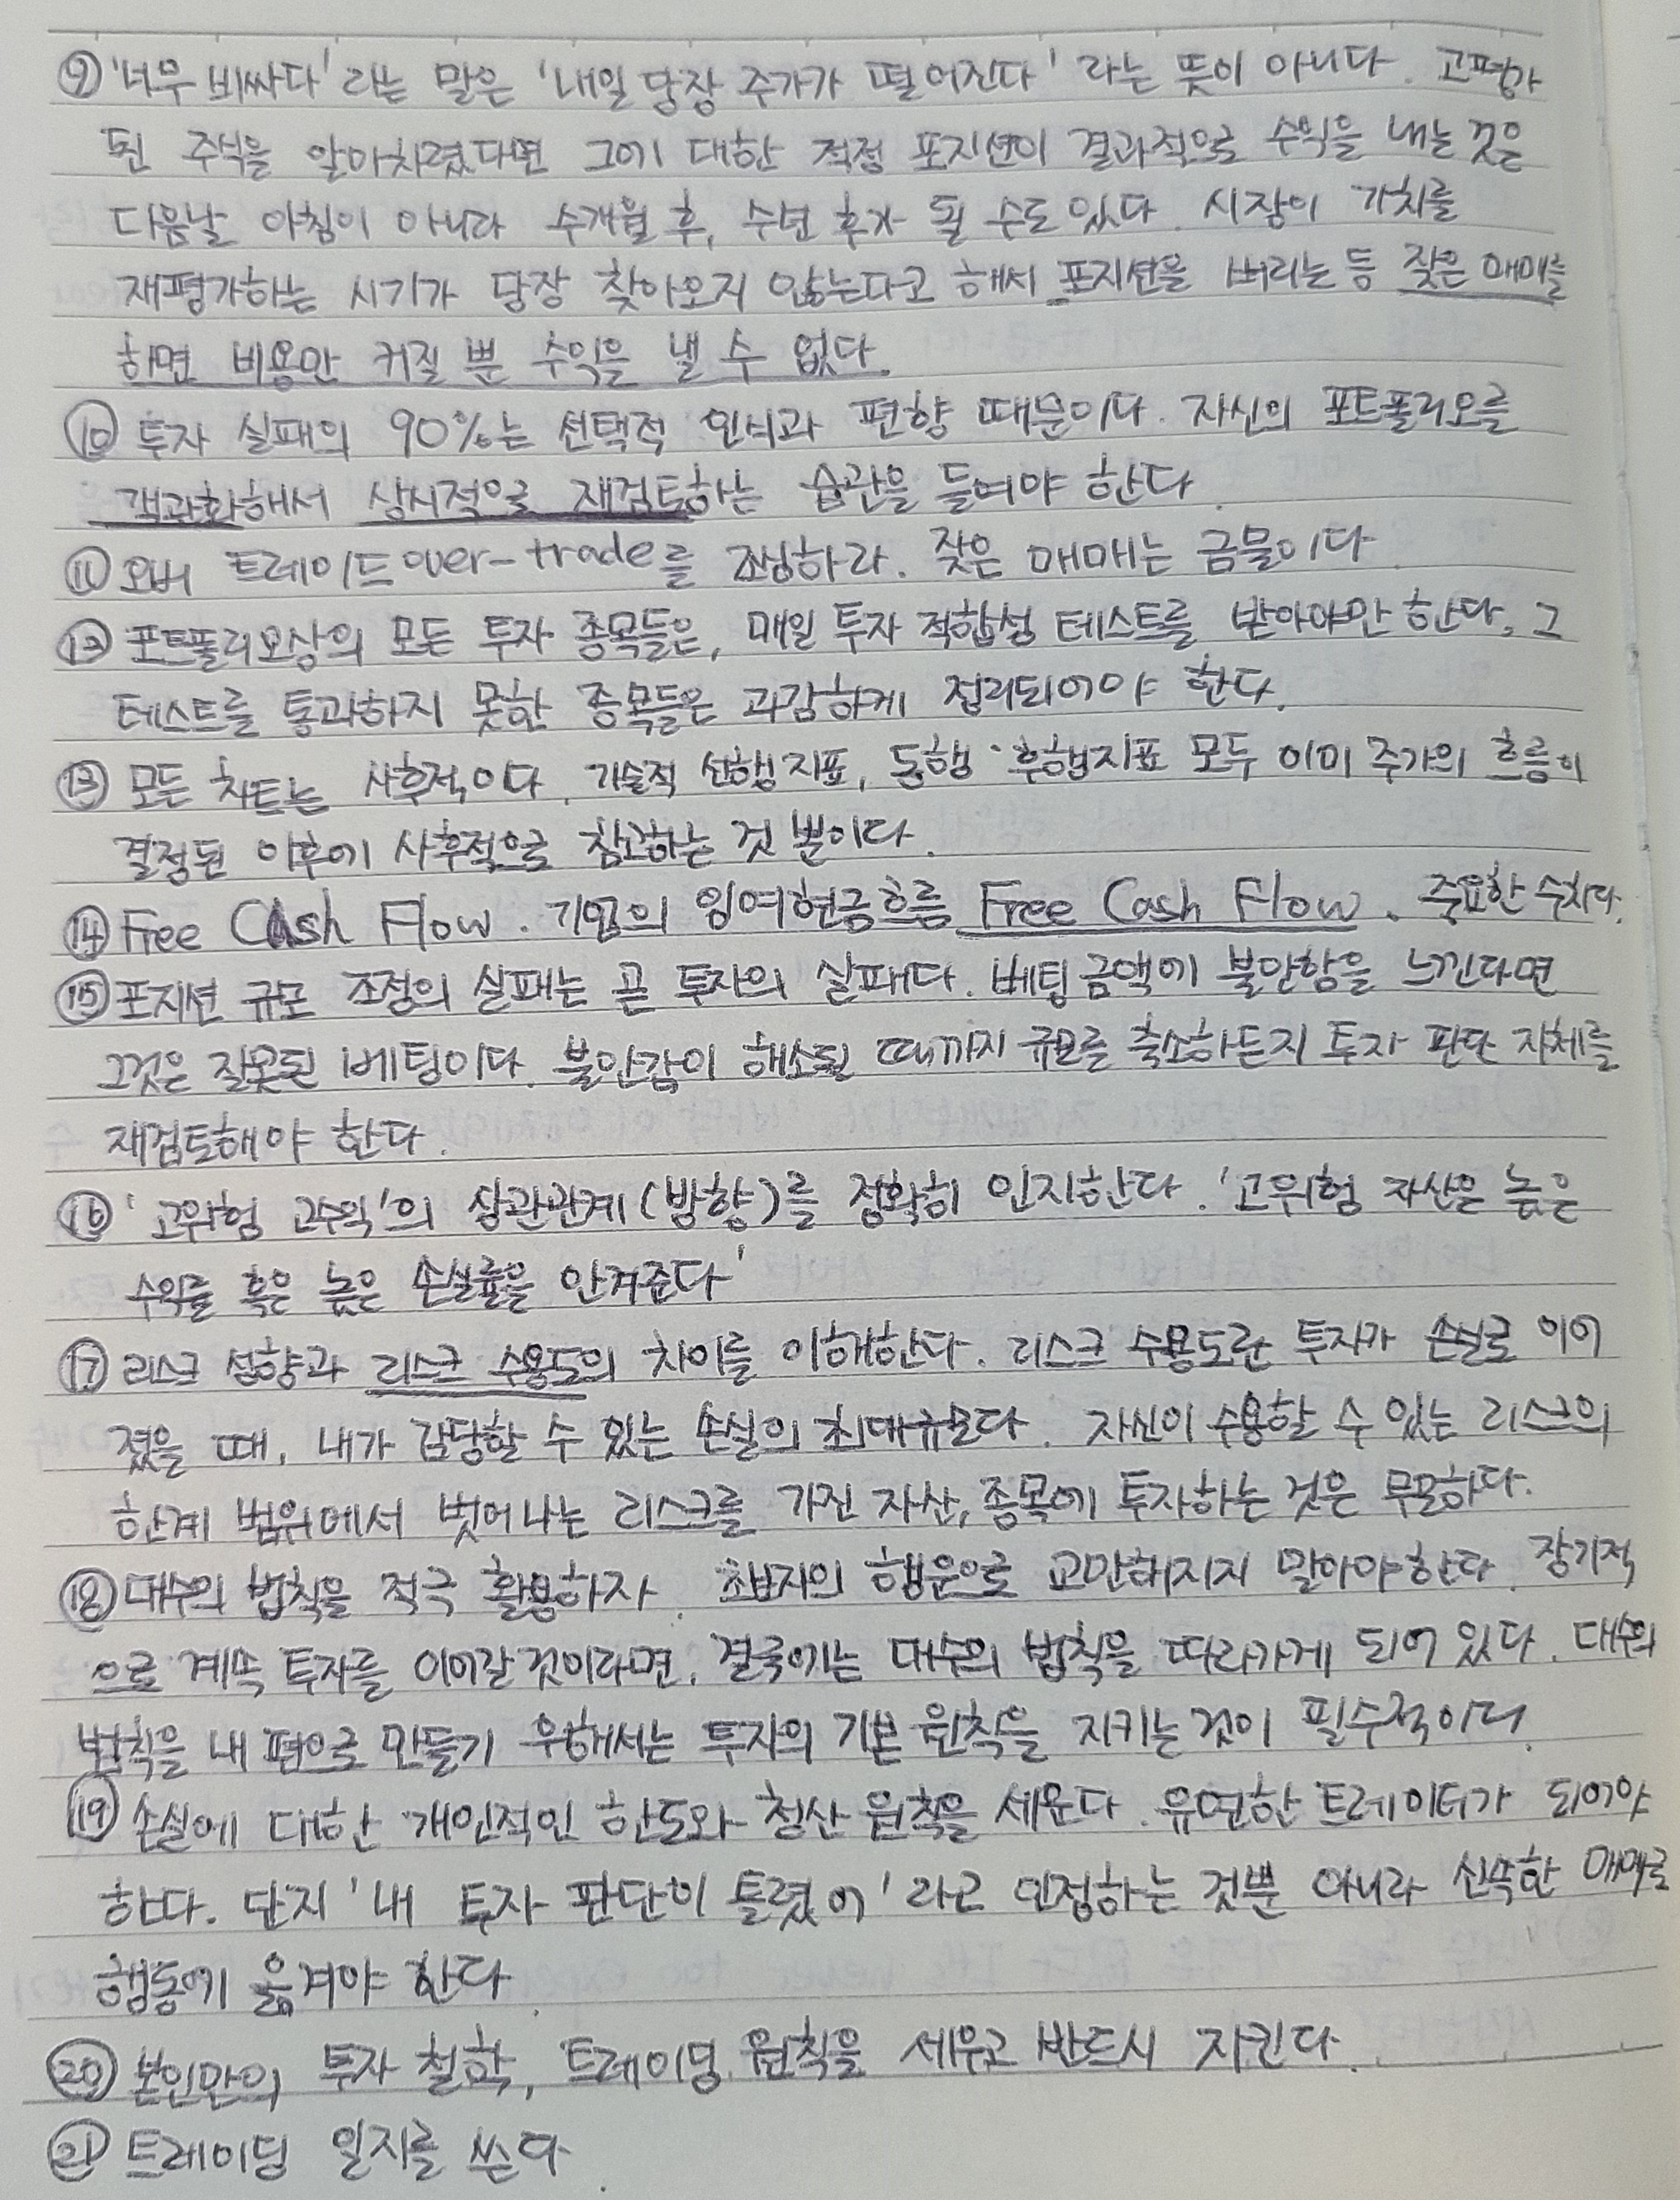 ⑨ '너무 비싸다' 라는 말은 '내일 당장 주가가 떨어진다' 라는 뜻이 아니다. 고평가
된 주식을 알아차렸다면 그에 대한 적정 포지션이 결과적으로 수익을 내는 것은
다음날 아침이 아니라 수개월 후, 수년 후가 될 수도 있다. 시장이 가치를
재평가하는 시기가 당장 찾아오지 않는다고 해서 포지션을 버리는 등 잦은 매매를
하면 비용만 커질 뿐 수익을 낼 수 없다.
⑩ 투자 실패의 90%는 선택적 인식과 편향 때문이다. 자신의 포트폴리오를
객관화해서 상시적으로 재검토하는 습관을 들여야 한다.
⑪ 오버 트레이드over-trade를 조심하라. 잦은 매매는 금물이다.
⑫ 포트폴리오상의 모든 투자 종목들은, 매일 투자 적합성 테스트를 받아야만 한다. 그
테스트를 통과하지 못한 종목들은 과감하게 정리되어야 한다.
⑬ 모든 차트는 사후적이다. 기술적 선행지표, 동행·후행지표 모두 이미 주가의 흐름이
결정된 이후에 사후적으로 참고하는 것 뿐이다.
⑭ Free Cash Flow. 기업의 잉여현금흐름 Free Cash Flow. 중요한 수치다.
⑮ 포지션 규모 조정의 실패는 곧 투자의 실패다. 베팅 금액에 불안함을 느낀다면
그것은 잘못된 베팅이다. 불안감이 해소될 때까지 규모를 축소하든지 투자 판단 자체를
재검토해야 한다.
⑯ '고위험 고수익'의 상관관계(방향)를 정확히 인지한다. '고위험 자산은 높은
수익률 혹은 높은 손실률을 안겨준다'
⑰ 리스크 성향과 리스크 수용도의 차이를 이해한다. 리스크 수용도란 투자가 손실로 이어
졌을 때, 내가 감당할 수 있는 손실의 최대규모다. 자신이 수용할 수 있는 리스크의
한계 범위에서 벗어나는 리스크를 가진 자산, 종목에 투자하는 것은 무모하다.
⑱ 대수의 법칙을 적극 활용하자. 초보자의 행운으로 교만해지지 말아야 한다. 장기적
으로 계속 투자를 이어갈 것이라면, 결국에는 대수의 법칙을 따라가게 되어 있다. 대수의
법칙을 내 편으로 만들기 위해서는 투자의 기본 원칙을 지키는 것이 필수적이다.
⑲ 손실에 대한 개인적인 한도와 청산 원칙을 세운다. 유연한 트레이더가 되어야
한다. 단지 '내 투자 판단이 틀렸어' 라고 인정하는 것뿐 아니라 신속한 매매로
행동에 옮겨야 한다.
⑳ 본인만의 투자 철학, 트레이딩 원칙을 세우고 반드시 지킨다.
㉑ 트레이딩 일지를 쓴다.